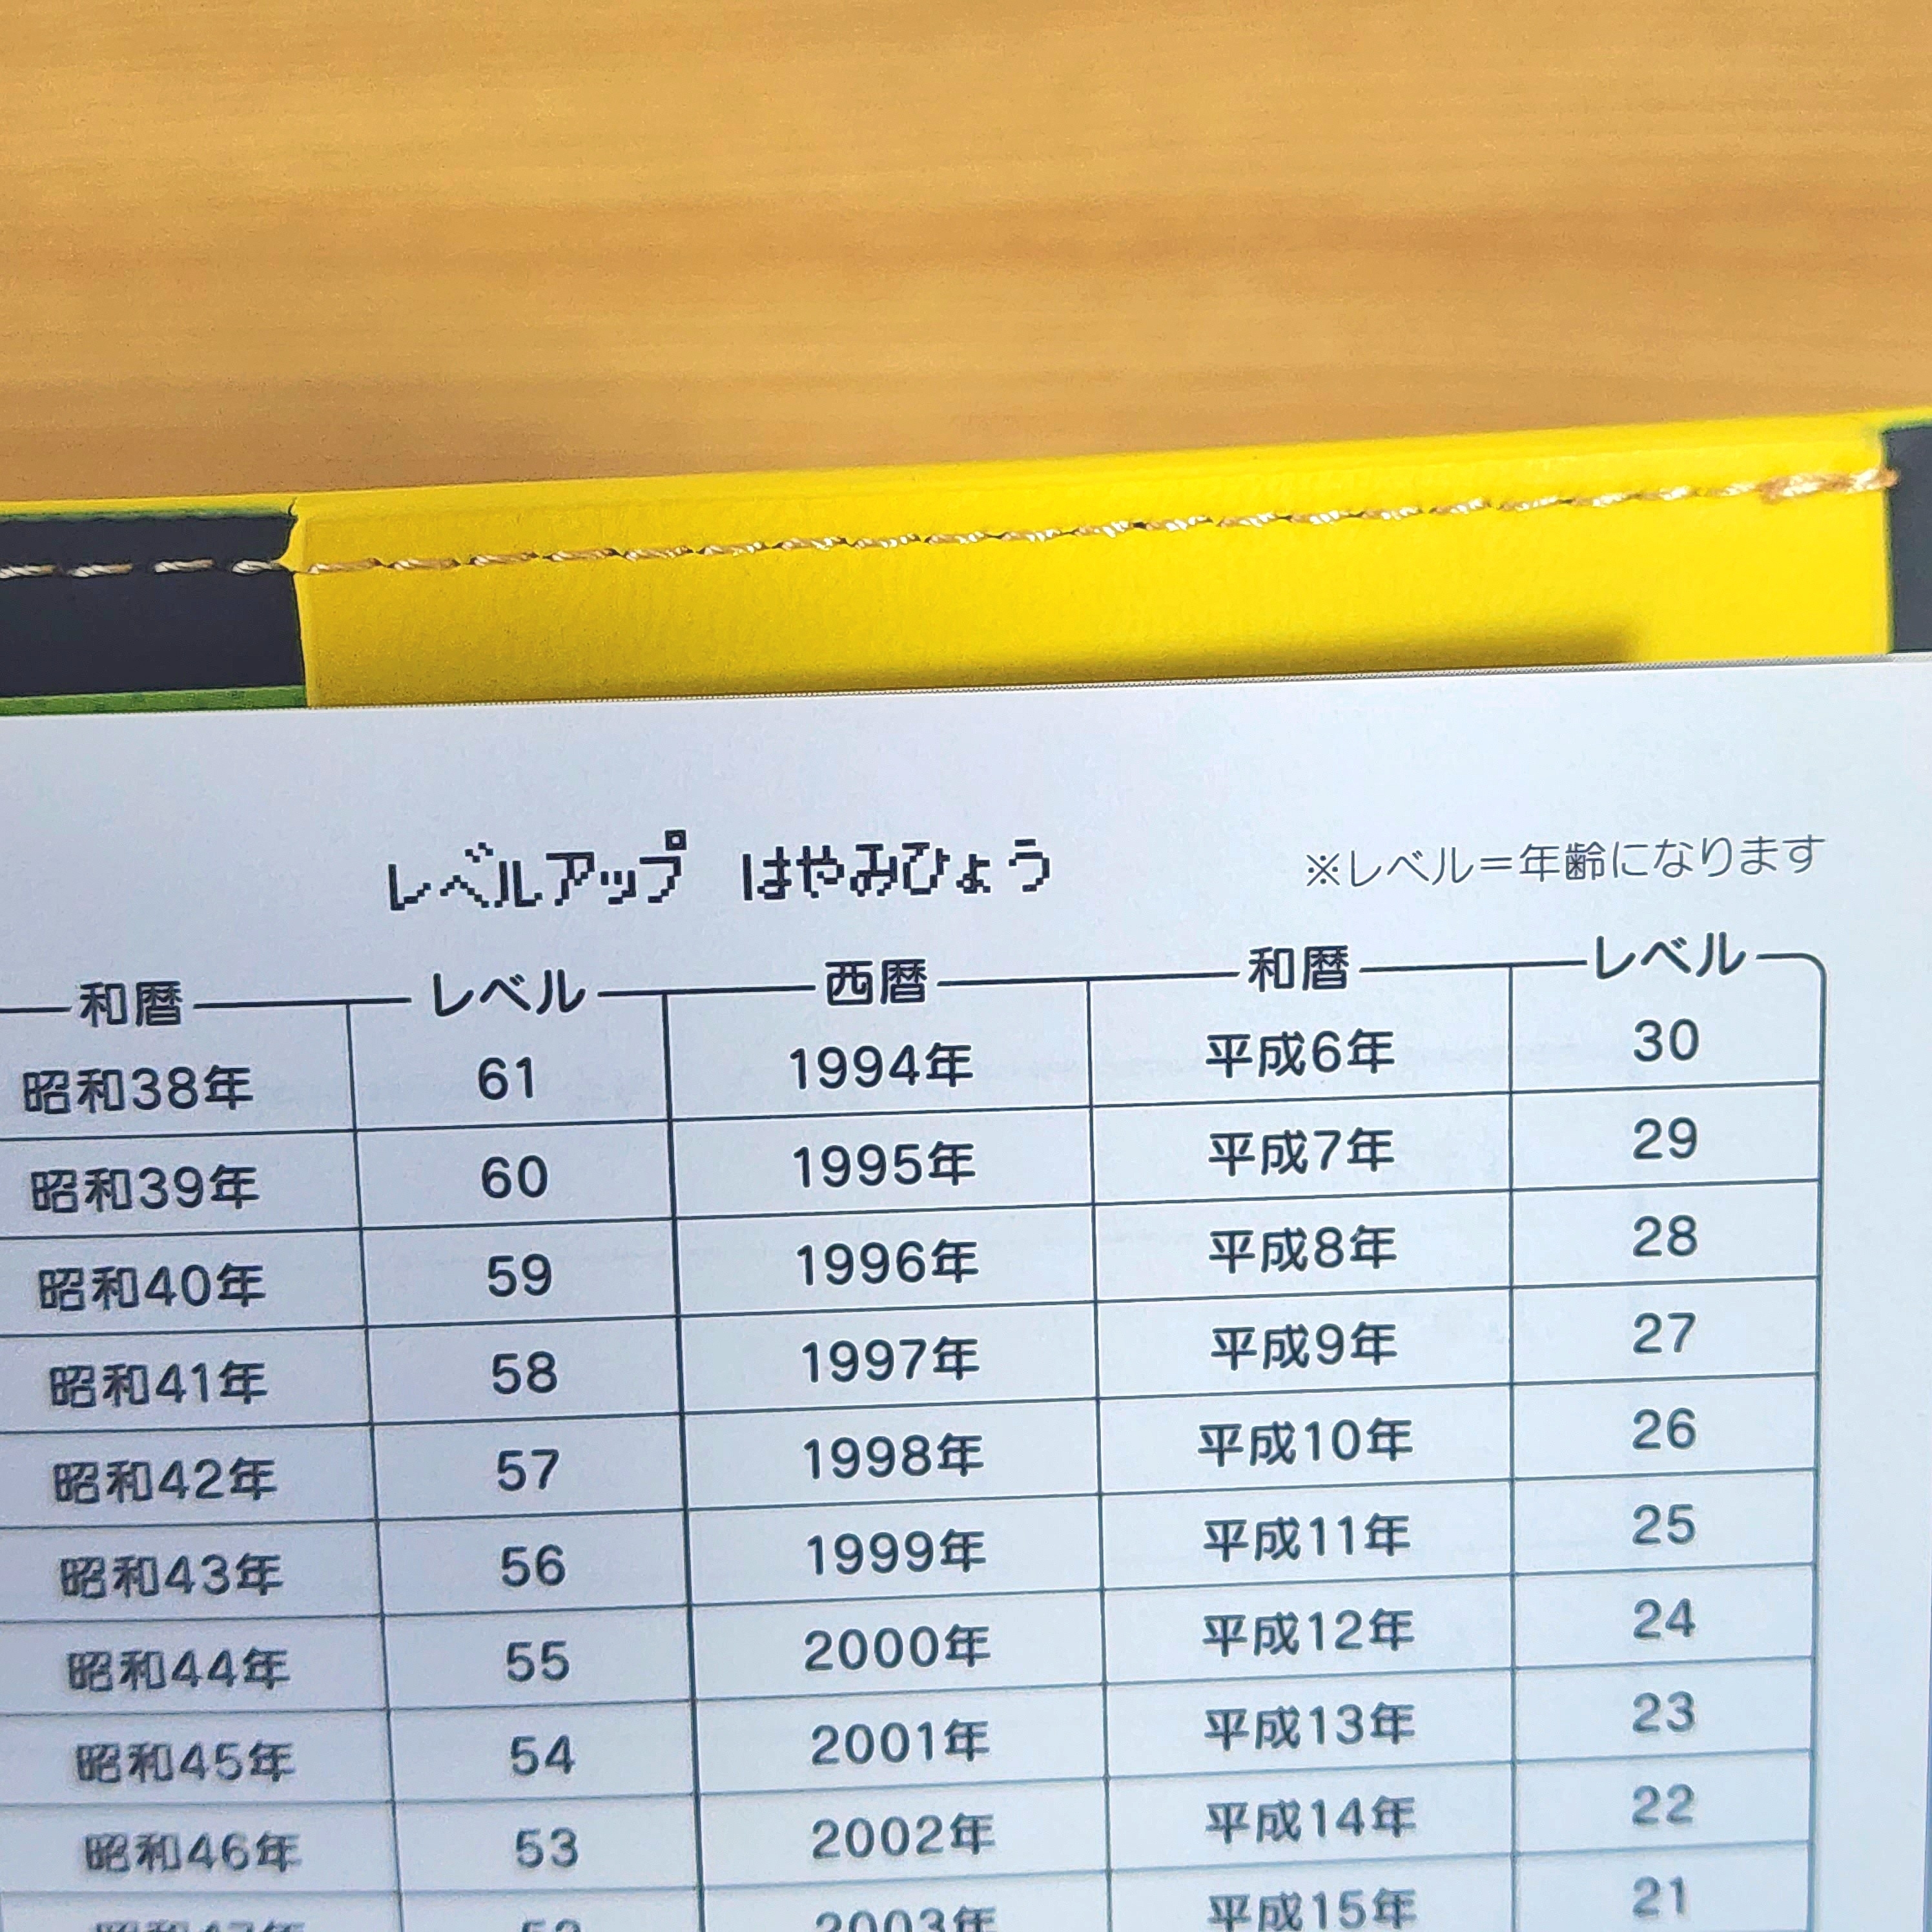 レベルアップ はやみひょう ※レベル=年齢になります
和暦 レベル 西暦 和暦 レベル
昭和38年 61 1994年 平成6年 30
昭和39年 60 1995年 平成7年 29
昭和40年 59 1996年 平成8年 28
昭和41年 58 1997年 平成9年 27
昭和42年 57 1998年 平成10年 26
昭和43年 56 1999年 平成11年 25
昭和44年 55 2000年 平成12年 24
昭和45年 54 2001年 平成13年 23
昭和46年 53 2002年 平成14年 22
2003年 平成15年 21